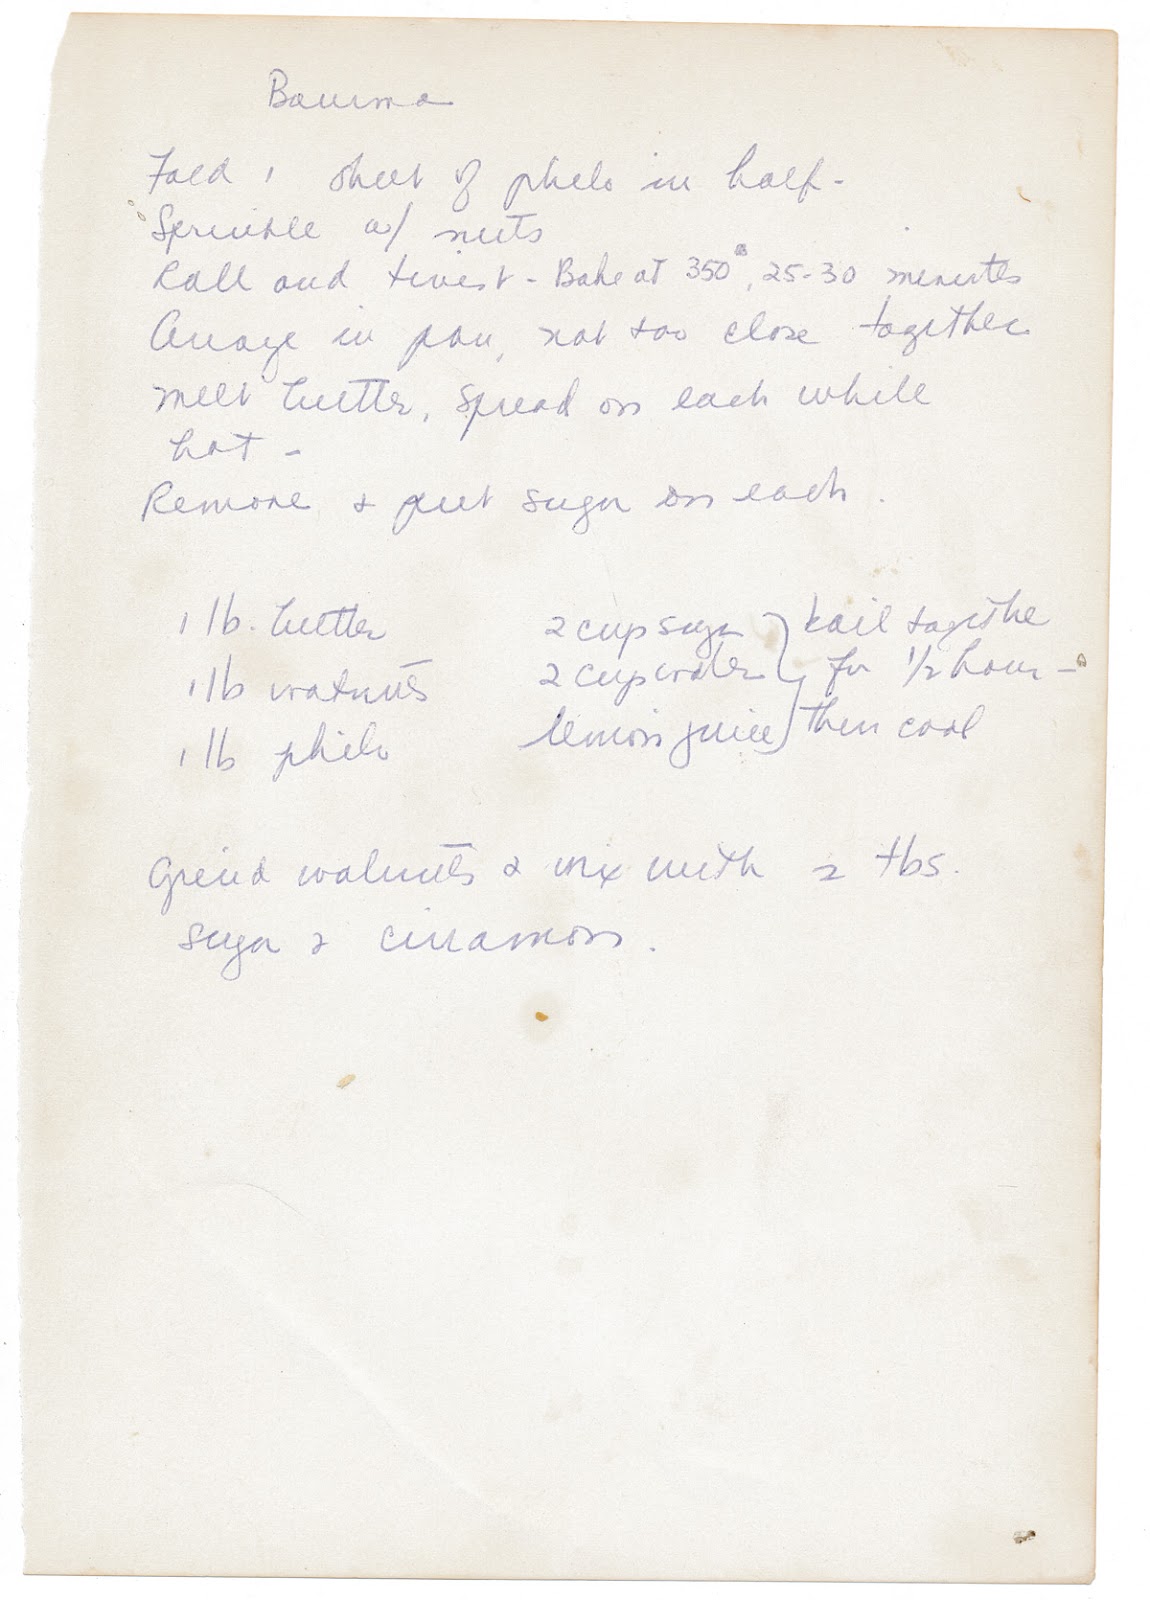 Bourma
Fold 1 sheet of philo in half -
Sprinkle w/ nuts
Roll and twist - Bake at 350°, 25-30 minutes
Arrage in pan, not too close together
melt butter, spread on each while
hot -
Remove & put sugar on each.
1 lb. butter 2 cup sugar } boil togethe
1 lb walnuts 2 cup water } for 1/2 hour -
1 lb philo lemon juice } then cool
Grind walnuts & mix with 2 tbs.
sugar & cinnamon.